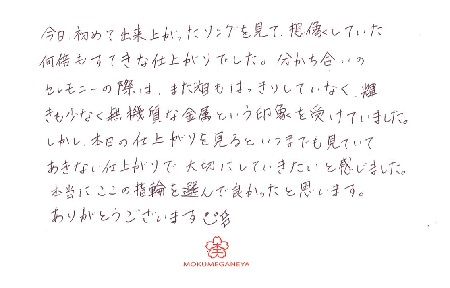 今日、初めて出来上がったリングを見て、想像していた
何倍もすてきな仕上がりでした。分かち合いの
セレモニーの際は、まだ柄もはっきりしていなく、輝
きも少なく無機質な金属という印象を受けていました。
しかし、本日の仕上がりを見るといつまでも見ていて
あきない仕上がりで大切にしていきたいと感じました。
本当にここの指輪を選んで良かったと思います。
ありがとうございます
MOKUMEGANEYA